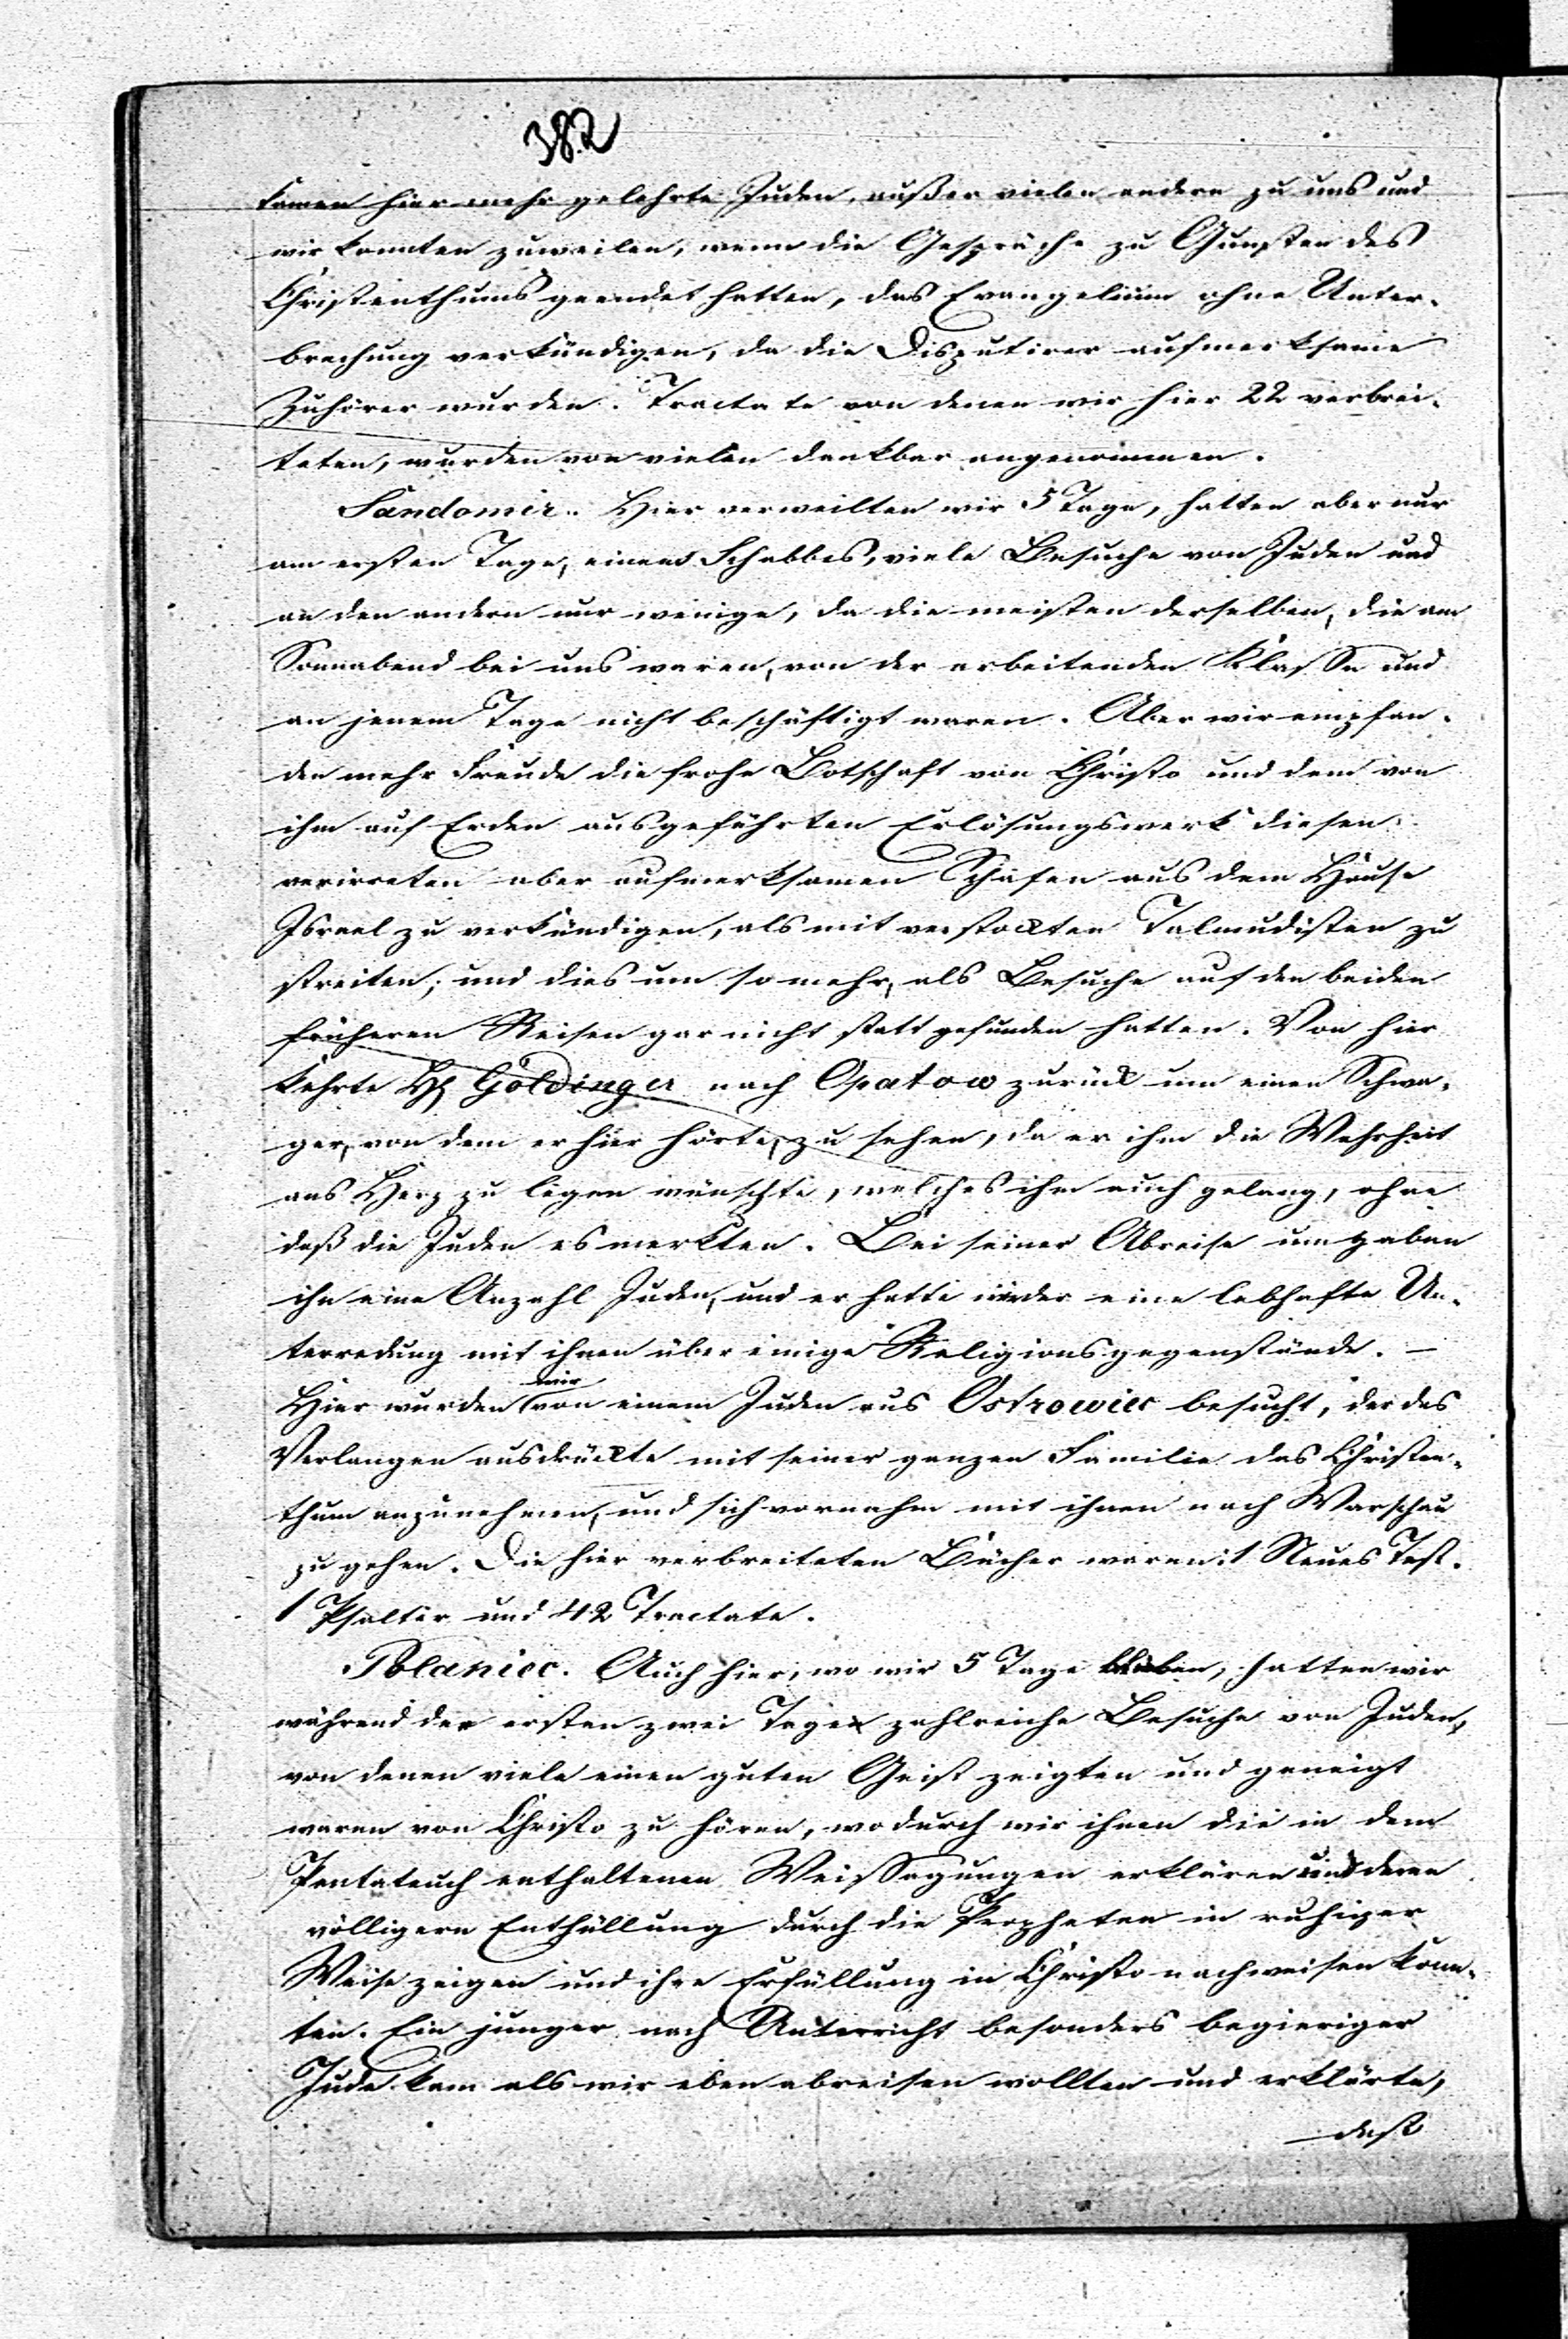 382
kamen hier mehr gelehrte Juden, außer vielen andern zu uns und
wir konnten zuweilen, wenn die Gespräche zu Gunsten des
Christenthums geendet hatten, das Evangelium ohne Unter-
brechung verkündigen, da die Disputirer aufmerksame
Zuhörer wurden. Tractate von denen wir hier 22 verbrei-
teten, wurden von vielen dankbar angenommen.
Sandomir. Hier verweilten wir 5 Tage, hatten aber nur
am ersten Tage, einem Schabbes, viele Besuche von Juden und
an den andern nur wenige, da die meisten derselben, die am
Sonnabend bei uns waren, von der arbeitenden Klasse und
an jenem Tage nicht beschäftigt waren. Aber wir empfan-
den mehr Freude die frohe Botschaft von Christo und dem von
ihm auf Erden ausgeführten Erlösungswerk diesen
verirreten aber aufmerksamen Schafen aus dem Hause
Israel zu verkündigen, als mit verstockten Talmudisten zu
streiten, und dies um so mehr, als Besuche auf den beiden
früheren Reisen gar nicht statt gefunden hatten. Von hier
kehrte H. Goldinger nach Opatow zurück um einen Schwa-
ger, von dem er hier hörte, zu sehen, da er ihm die Wahrheit
ans Herz zu legen wünschte, welches ihm auch gelang, ohne
daß die Juden es merkten. Bei seiner Abreise umgaben
ihn eine Anzahl Juden, und er hatte wieder eine lebhafte Un-
terredung mit ihnen über einige Religionsgegenstände. –
Hier wurden wir von einem Juden aus Ostrowiec besucht, der das
Verlangen ausdrückte mit seiner ganzen Familie das Christen-
thum anzunehmen, und sich vornahm mit ihnen nach Warschau
zu gehen. Die hier verbreiteten Bücher waren: 1 Neues Test.
1 Psalter und 42 Tractate.
Polaniec. Auch hier, wo wir 5 Tage blieben, hatten wir
während der ersten zwei Tage zahlreiche Besuche von Juden,
von denen viele einen guten Geist zeigten und geneigt
waren von Christo zu hören, wodurch wir ihnen die in dem
Pentateuch enthaltenen Weissagungen erklären und deren
völligern Enthüllung durch die Propheten in ruhiger
Weise zeigen und ihre Erfüllung in Christo nachweisen konn-
ten. Ein junger nach Unterricht besonders begieriger
Jude kam als wir eben abreisen wollten und erklärte,
daß